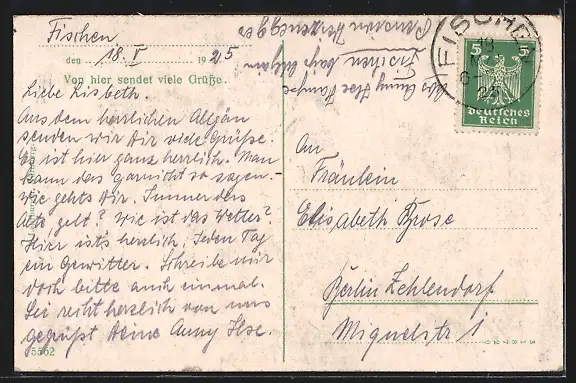 Fischen
den 18. I 1925
Von hier sendet viele Grüße.
Liebe Lisbeth.
Aus dem herrlichen Allgäu
senden wir dir viele Grüße.
Es ist hier ganz herrlich. Man
kann das garnicht so sagen.
wie gehts dir. Immer das
alte gelt? Wie ist das Wetter?
Hier ists herrlich, jeden Tag
ein Gewitter. Schreibe mir
doch bitte auch einmal.
Sei recht herzlich von uns
gegrüßt deine Anny Ilse.
5562
Pension
Fischen Allgäu
Anny Ilse
FISCHEN
5 5
Deutsches
Reich
An
Fräulein
Elisabeth Brose
Berlin Zehlendorf
Miquelstr 1